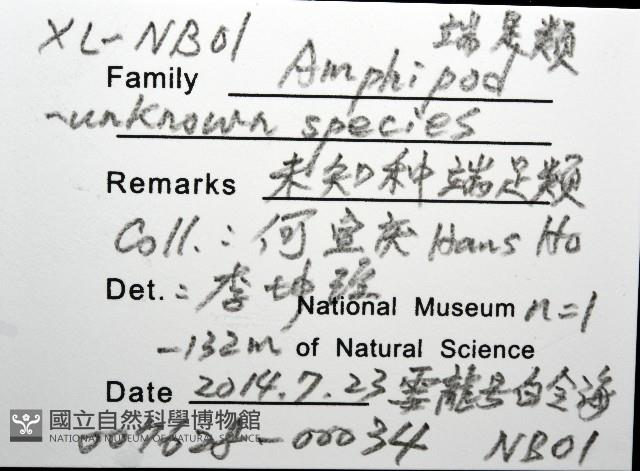 XL-NB01 端足類
Family Amphipod
~unknown species
Remarks 未知种端足類
Coll.: 何宣庆 Hans Ho
Det.: 李坤瑄
National Museum n=1
-132m of Natural Science
Date 2014.7.23 雲龍号白令海
國立自然科學博物館
NATIONAL MUSEUM OF NATURAL SCIENCE
-00034 NB01